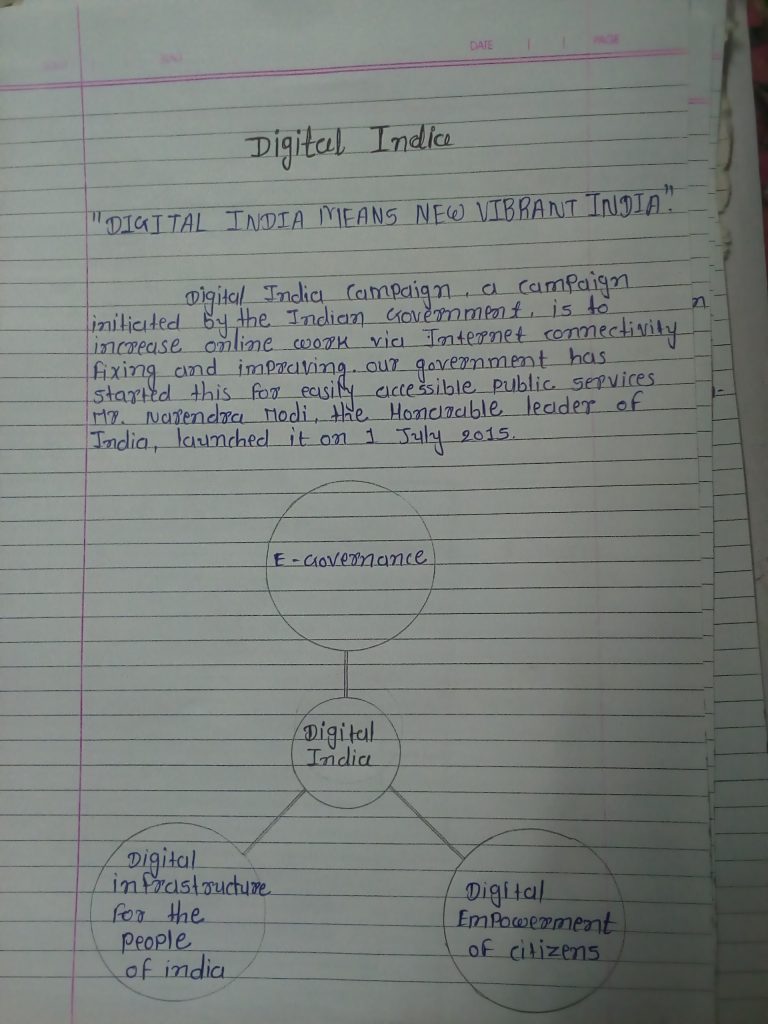 DATE
PAGE
Digital India
"DIGITAL INDIA MEANS NEW VIBRANT INDIA".
Digital India Campaign, a campaign
initiated by the Indian Government, is to
increase online work via Internet connectivity
fixing and improving. our government has
started this for easily accessible public services
Mr. Narendra Modi, the Honorable leader of
India, launched it on 1 July 2015.
E-Governance
Digital
India
Digital
infrastructure
for the
people
of india
Digital
Empowerment
of citizens